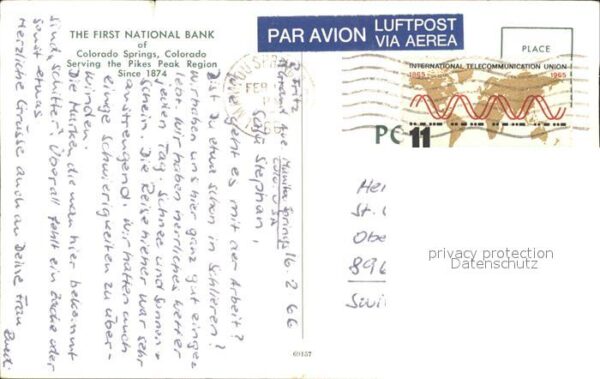 THE FIRST NATIONAL BANK
of
Colorado Springs, Colorado
Serving the Pikes Peak Region
Since 1874
PAR AVION
LUFTPOST
VIA AEREA
PLACE
INTERNATIONAL TELECOMMUNICATION UNION
1865 1965
11
MANITOU SPRINGS
FEB
Manitou Springs
Colo. USA
16. 2. 66
Salü Stephan,
Wie geht es mit der Arbeit?
Bist du etwa schon in Schlieren?
Wir haben uns hier ganz gut einge
lebt. Wir haben herrliches Wetter
jeden Tag. Schnee und Sonnen-
schein. Die Reise hieher war sehr
anstrengend. Wir hatten auch
einige Schwierigkeiten zu über-
winden.
Die Marken die man hier bekommt
sind "schitter". Überall fehlt ein Zacke oder
sonst etwas
Herzliche Grüsse auch an Deine Frau
St.
Obe
896
privacy protection
Datenschutz
69157